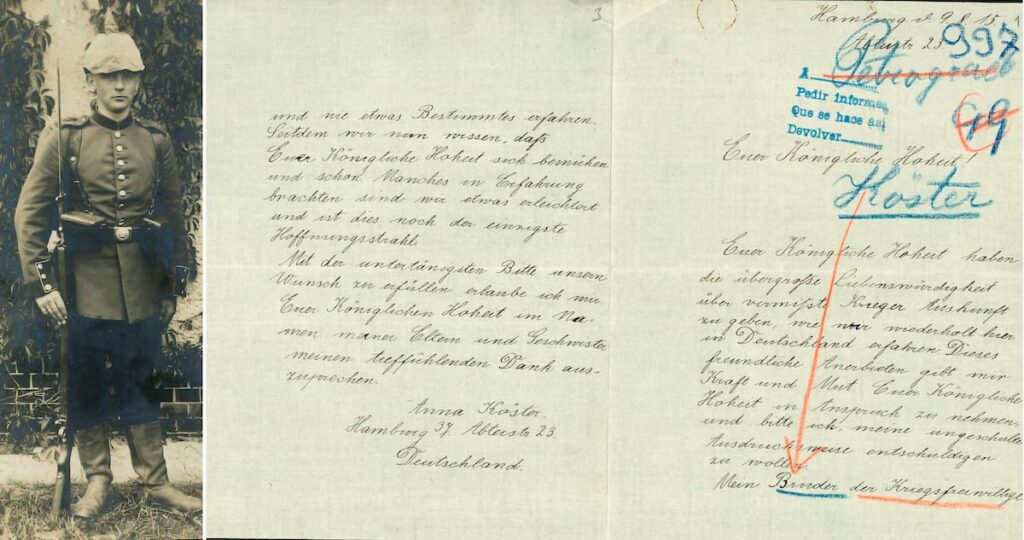 3
und nie etwas Bestimmtes erfahren.
Seitdem wir nun wissen, daß
Euer Königliche Hoheit sich bemühen
und schon Manches in Erfahrung
brachten sind wir etwas erleichtert
und ist dies noch der einzigste
Hoffnungsstrahl.
Mit der untertänigsten Bitte unsern
Wunsch zu erfüllen erlaube ich mir
Euer Königlichen Hoheit im Na-
men meiner Eltern und Geschwister
meinen tieffühlenden Dank aus-
zusprechen.
Anna Köster.
Hamburg 37. Abteistr 23.
Deutschland.
1
Hamburg d 9. 8. 15.
Abteistr 23
997
Petrograd
A
Pedir informes
Que se hace así
Devolver
49
Euer Königliche Hoheit!
Köster
Euer Königliche Hoheit haben
die übergroße Liebenswürdigkeit
über vermißte Krieger Auskunft
zu geben, wie wir wiederholt hier
in Deutschland erfahren. Dieses
freundliche Anerbieten gibt mir
Kraft und Mut Euer Königliche
Hoheit in Anspruch zu nehmen
und bitte ich, meine ungeschulte
Ausdrucksweise entschuldigen
zu wollen.
Mein Bruder der Kriegsfreiwillige